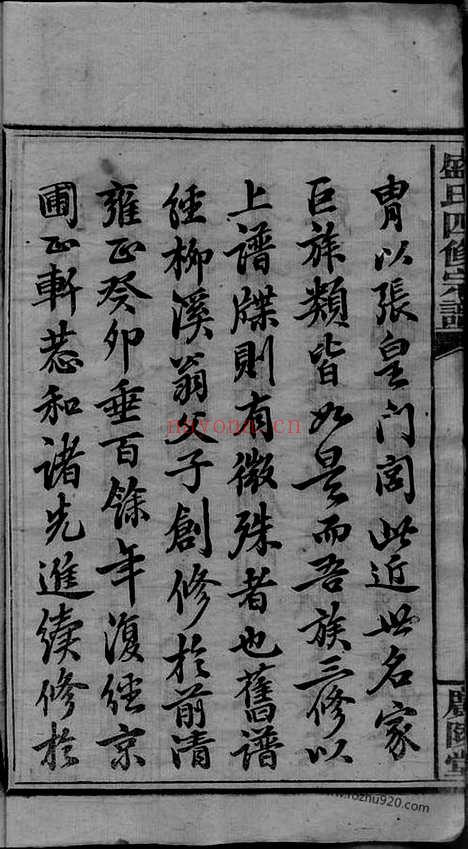 胄以張皇门閭此近世名家
巨族類皆如是而吾族三修以
上譜牒則有徵殊者也舊譜
经柳溪翁父子創修於前清
雍正癸卯垂百餘年復经京
圃正軒蕙和诸先進續修於
盛氏四修宗譜
廣陵堂
nayona.cn
www.rozhu920.com